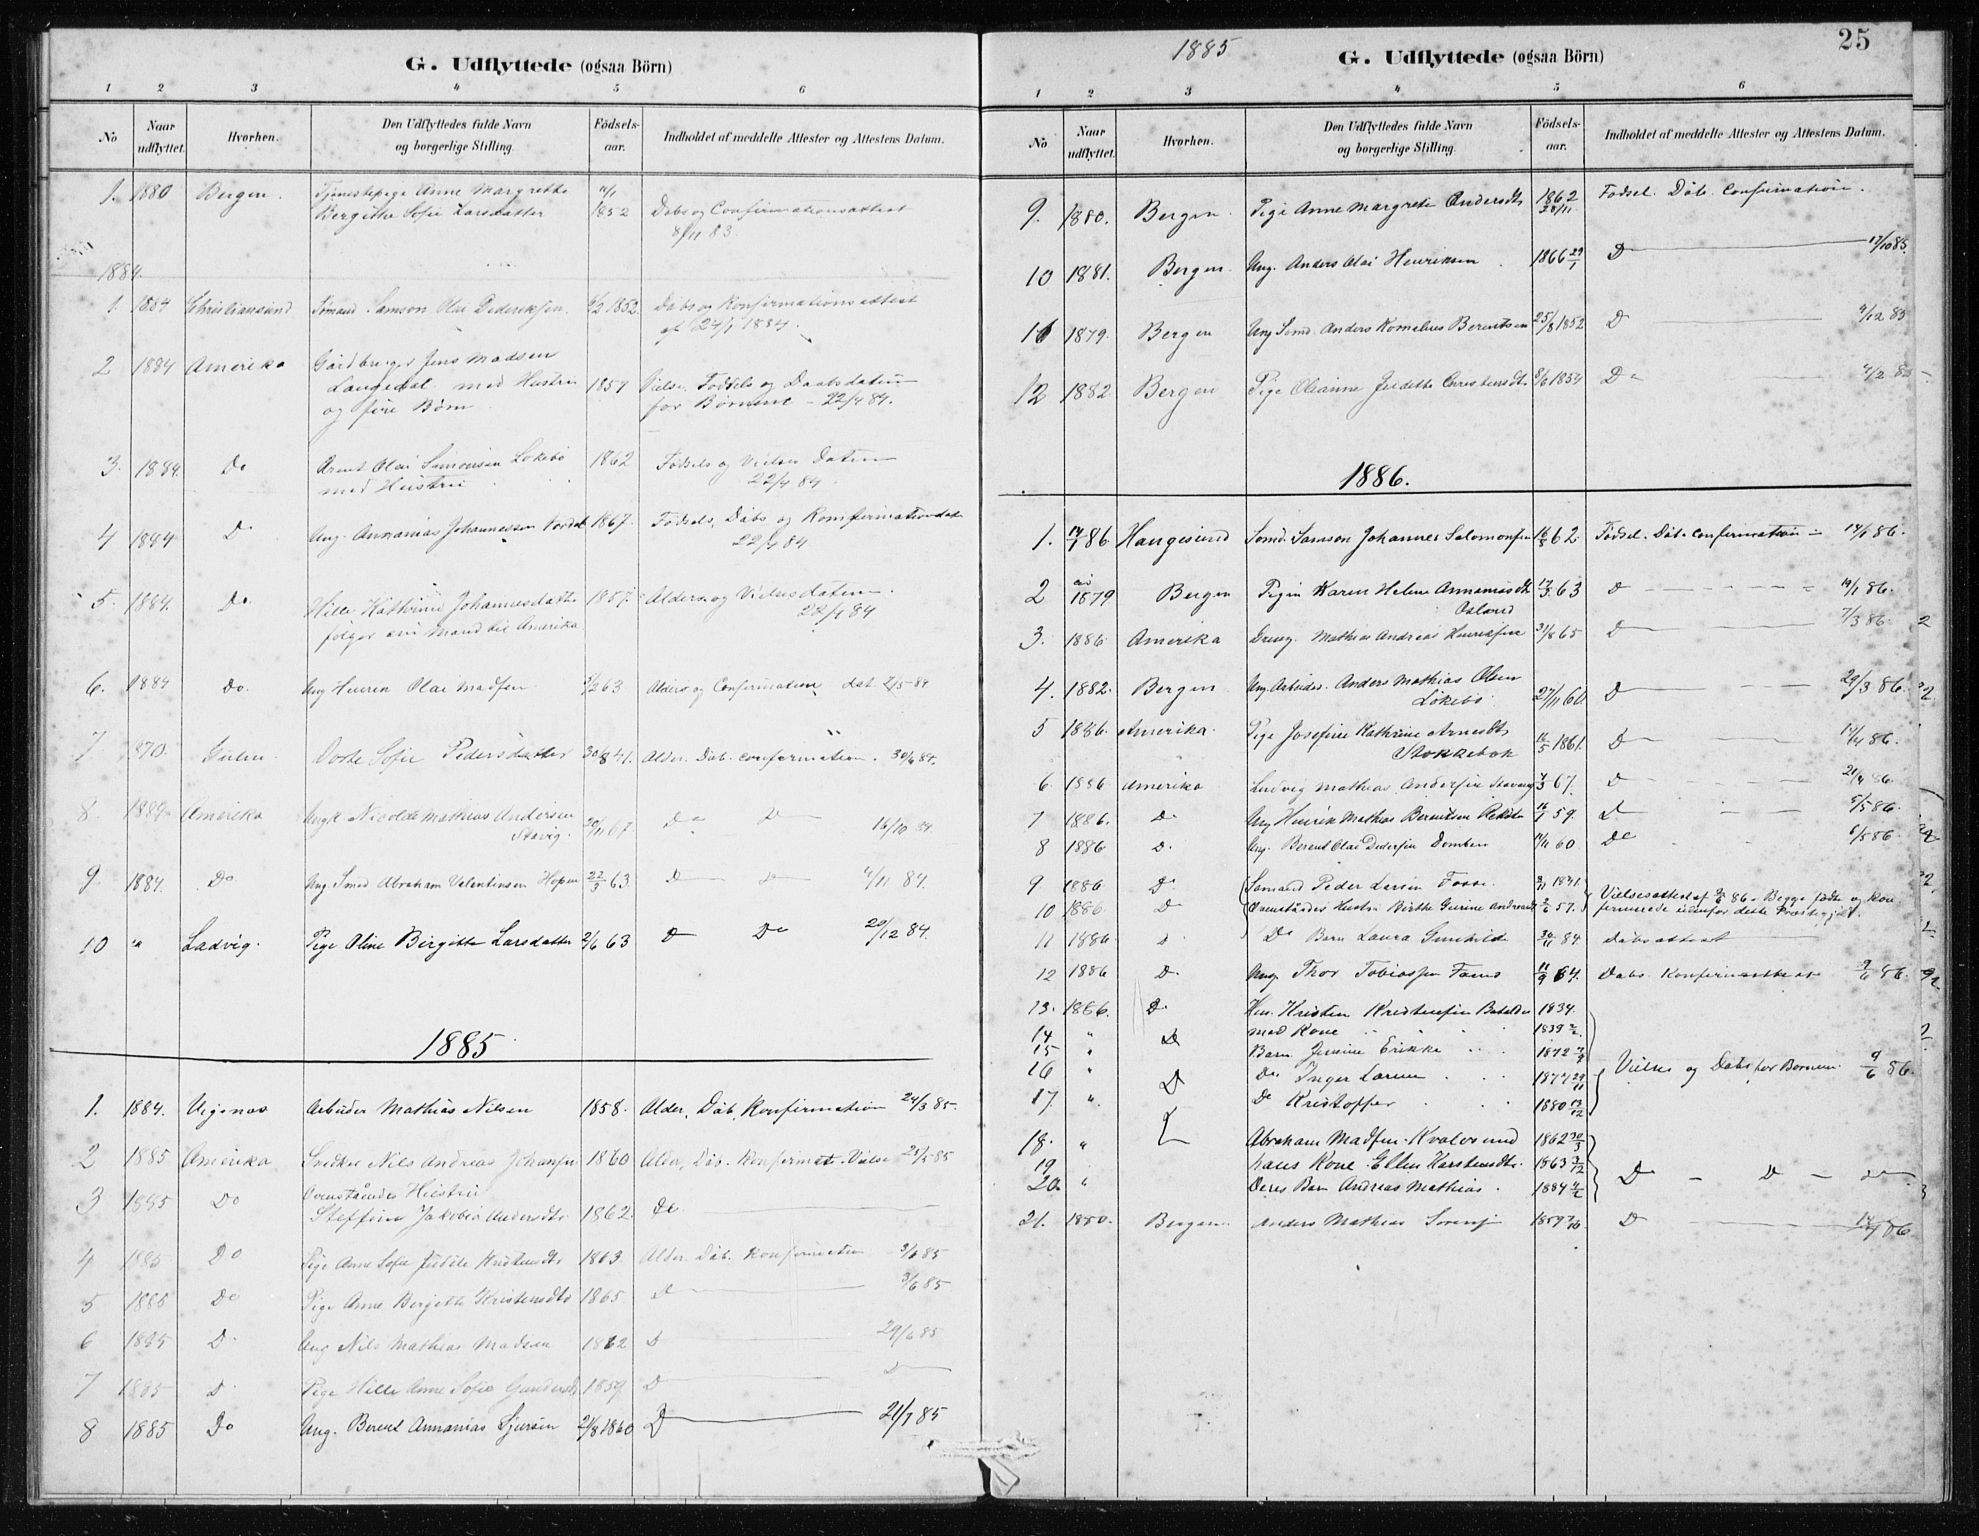 G. Udflyttede (ogsaa Börn)
1 2 3 4 5 6
No Naar udflyttet. Hvorhen. Den Udflyttedes fulde Navn og borgerlige Stilling. Födsels-aar. Indholdet af meddelte Attester og Attestens Datum.
1. 1880 Bergen. Tjenestepige Anne Margrethe
Bergithe Sofie Larsdatter 1852 Dabs og Confirmationsattest
8/11 83
1884.
1. 1884 Christiansund Samson Olai Dideriksen. 1852. Dabs og Konfirmationsattest
af 24/1 1884.
2 1884 Amerika Gårdbruger Jens Madsen
Langedal med Hustru 1857 Vielse, Fødsels og Daabsdatum
og fire Børn for Børnene - 22/4 84.
3. 1884. Do Arent Olai Simonsen Løkebø 1862 Fødsels og Vielses Datum
med Hustru 22/4 84
4 1884 D. Ung. Annanias Johannessen 1867. Fødsels, Dåbs og Komfirmationdat
22/4 84
5. 1884. Do. Hille Kathrine Johannesdatter 1857. Alders og Vielsesdatum.
følger sin Mand til Amerika. 22/4 84
6. 1884 Do. Ung Henrik Olai Madsen 63 Alders og Confirmation dat 2/5 84
7 1870. Gulen Dorte Sofie Pedersdatter 30/8 41. Alder. Dåb. confirmation. 30/6 84.
8. 1884 Amerika Ungk Nicolai Mathias Andersen
Stavig. 20/11 67 Do D 16/10 84.
9. 1884. Do Ung Smed Abraham Valentinsen Hopen 22/3 63. D D 4/11 84.
10 " Ladvig. Pige Aline Birgitte Larsdatter 2/6 63 D Do 20/12 84.
1885
1. 1884. Arbeider Mathias Nilsen 1858. Alder, Dåb, Konfirmation 24/3 85.
2 1885 Amerika Snedker Nils Andreas Johansen 1860 Alder, Dåb. Konfirmat. Vielse 85
3 1885 Do Ovenståendes Hustru
Steffine Jakobia Andersdtr 1862. Do.
4 1885 Do Pige Anne Sofie Juditte Kristensdtr 1863. Alder. Dåb. Konfirmation 3/6 85
5 1885 Do Pige Anne Bergitte Kristensdtr 1865. D 3/6 85
6 1885 D. Ung Nils Mathias Madsen 1862 D 29/6 85
7 1885 D. Pige Hille Anne Sofie Gundersdtr 1859. D D
8 1885 Do Ung. Berent Annanias Sjursen 21/8 1860 D 21/7 85
1885
25
G. Udflyttede (ogsaa Börn)
1 2 3 4 5 6
No Naar udflyttet. Hvorhen. Den Udflyttedes fulde Navn og borgerlige Stilling. Födsels-aar. Indholdet af meddelte Attester og Attestens Datum.
9. 1880. Bergen. Pige Anne Margrete Andersdtr 1862 28/11 Fodsel. Dåb. Confirmation.
10 1881. Bergen. Ung. Anders Olai Henriksen 1866 29/1 D 17/10 85.
11 1879. Bergen Ung Somd. Anders Kornelius Berentsen 25/8 1852 D 9/12 85
12 1882 Bergen Pige Olianne Juditte Christensdtr 8/6 1854 Do 4/2 85
1886.
1. 14/1 86 Haugesund Somd. Samson Johannes Salomonsen 16/8 62 Fodsel. Dåb. Confirmation 14/1 86.
2 1879 Bergen Pigen Karen Helene Annaniasdtr 63 D 19/1 86.
Osland
3. 1886 Amerika Dreng. Mathias Andreas Henriksen 31/8 65 D 7/3 86.
4. 1882. Bergen Ung. Arbeider. Anders Mathias Olsen
Løkebø 27/11 60. D 29/3 86.
5 1886. Amerika. Pige Josefine Kathrine Arnesdtr
Stokkebøk 16/5 1861. D 14/4 86.
6. 1886 Amerika Ludvig Mathias Andersen Stavang 67. D 21/4 86
7 1886. Do Ung Henrik Mathias Berentsen 59. D 5/5 86.
8 1886 D. Ung. Berent Olai Dedersen 60 Do 6/5 86.
9 1886 D. Somand Peder Larsen Fosse. 1831. Vielsesattest af 86. Begge fødte og kon
10 1886. D Ovenståendes Hustru Birthe Gurine 57. firmerede udenfor dette Præstegjeld.
11 1886 D. Do Barn Laura Gunhilde 30/11 84. Dåbsattest
12 1886 D. Ung. Thor Tobiassen 11/9 64. Dabs. Konfirmattest 86.
13. 1886. D. Hus. Kristen Kristensen Batalden 1834.
14 " D med Kone 1839
15 " Barn Erikke 1872
16 " D Do Inger Larine 1877 29/11 Vielse og Dabs for Børnene. 9/6 86.
17. " Do Kristoffer 1880 13/12
18. " Abraham Madsen Kvalosund 1862 30/3
19 hans Kone. Ellen Karstensdtr. 1863 D - D -
20. " Deres Barn Andreas Mathias. 1884
21. 1880. Bergen. Anders Mathias Sorensen 1859 D 86